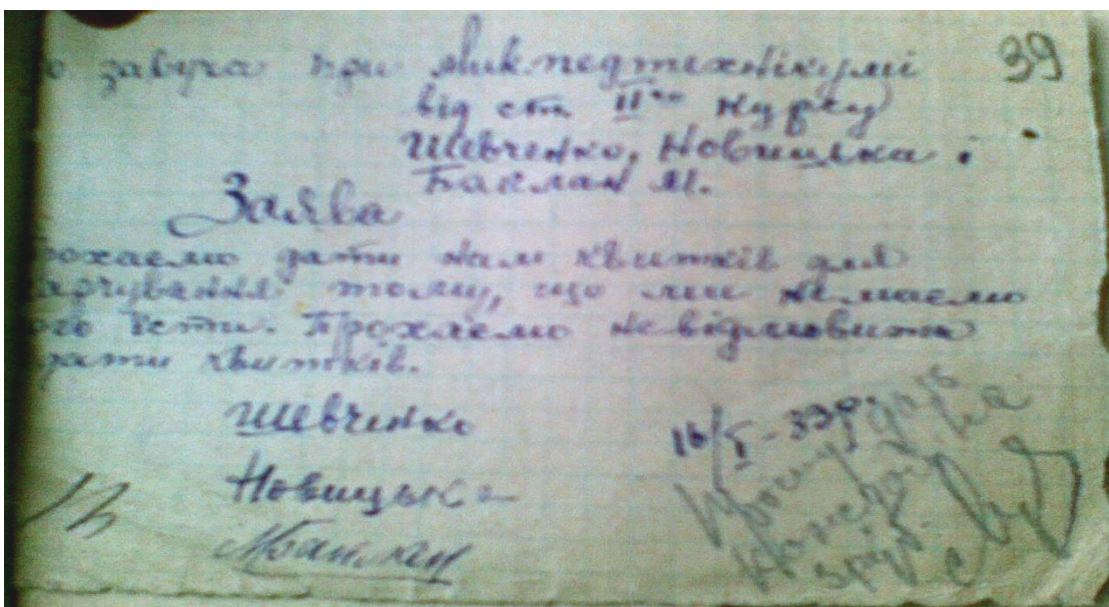 39
о завуча при Мик. педтехнікумі
від ст. ІІго курсу
Шевченко, Новицька і
Баклан М.
Заява
рохаємо дати нам квитків для
арчування тому, що ми не маємо
ого їсти. Прохаємо невідмовити
дати квитків.
Шевченко
Новицька
МБаклан
16/I-33р.